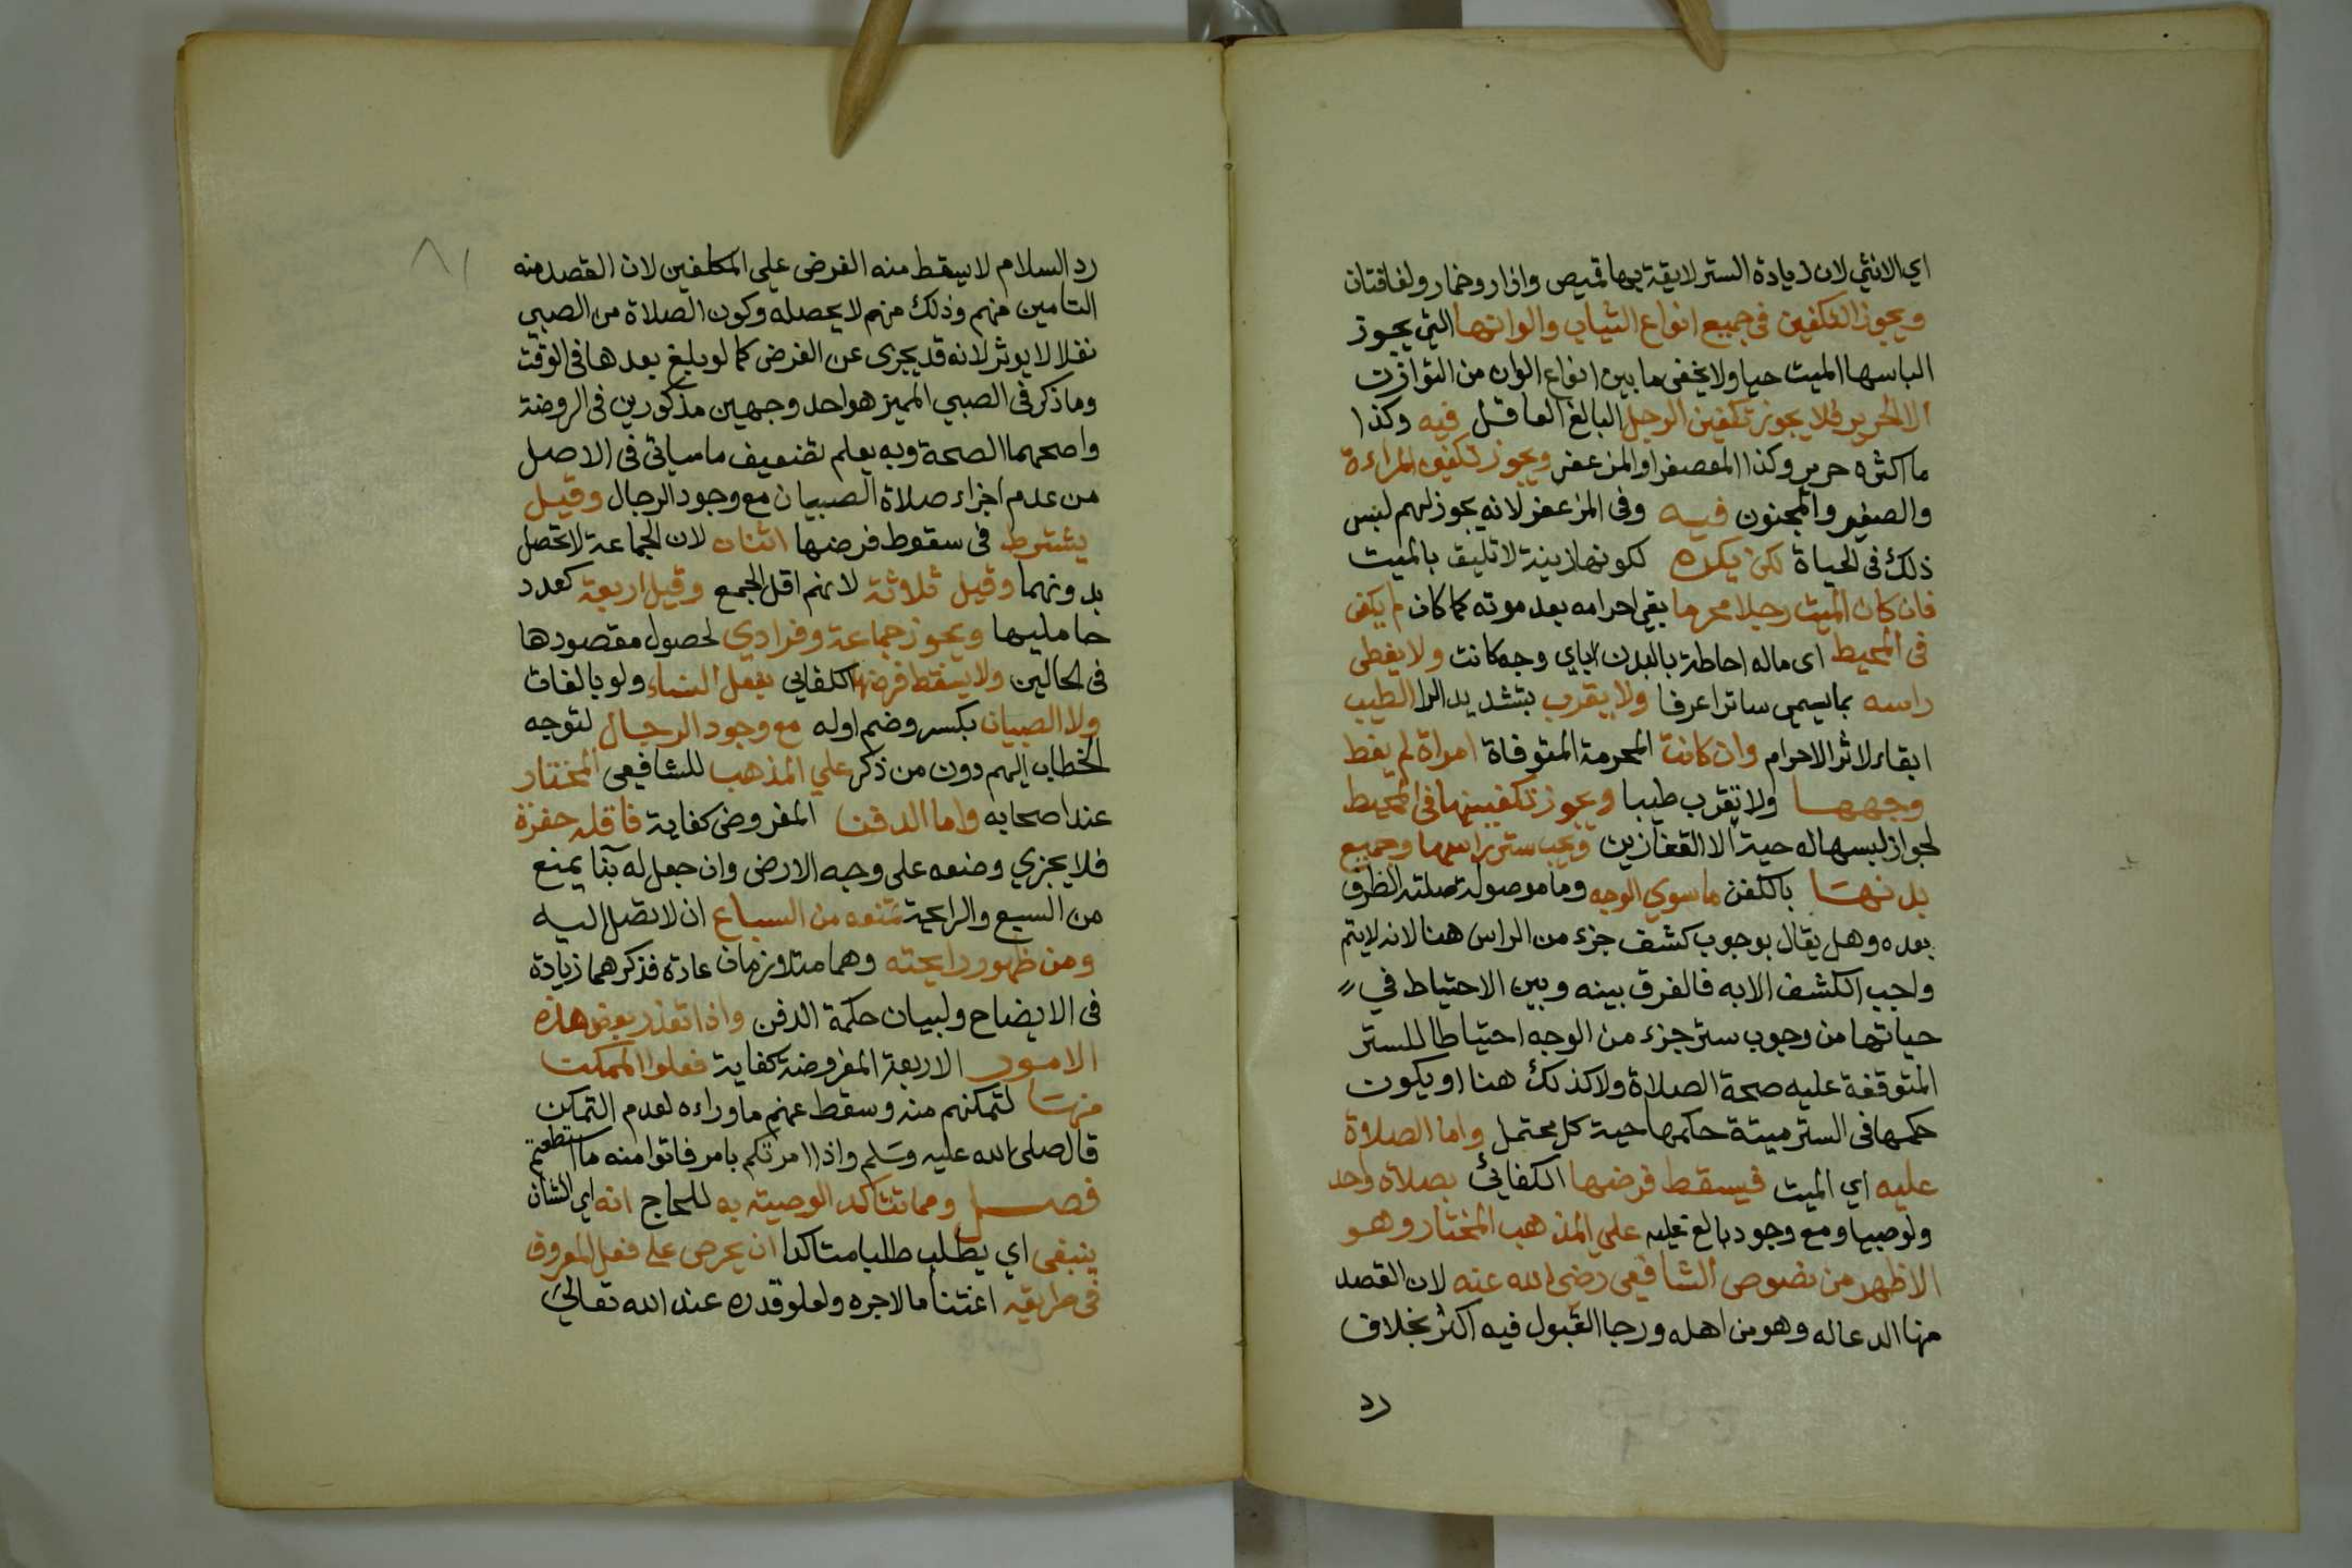 اي الانثي لان زيادة الستر لايقة بها قميص وازار وخمار ولفافتان
ويجوز التكفين في جميع انواع الثياب والوانها التي يجوز
الباسها الميت حيا ولا يخفى ما بين انواع الوان من التوازن
الا الحرير فلا يجوز تكفين الرجل البالغ العاقل فيه وكذا
ما اكثره حرير وكذا المعصفر او المزعفر ويجوز تكفين المراءة
والصغير والمجنون فيه وفى المزعفر لانه يجوز لهم لبس
ذلك في الحياة لكن يكره لكونها زينة لا تليق بالميت
فان كان الميت رجلا محرما بقي احرامه بعد موته كما كان لم يكفن
في المحيط اى ماله احاطة بالبدن باي وجه كانت ولا يغطى
راسه بما يسمي ساترا عرفا ولا يقرب بتشديد الرا الطيب
ابقاء لاثر الاحرام وان كانت المحرمة المتوفاة امراة لم يغط
وجهها ولا تقرب طيبا ويجوز تكفينها في المحيط
لجواز لبسها له حية الا القفازين ويجب ستر راسها وجميع
بدنها بالكفن ما سوي الوجه وما موصولة صلته الظرف
بعده وهل يقال بوجوب كشف جزء من الراس هنا لانه لا يتم
واجب الكشف الا به فالفرق بينه وبين الاحتياط في
حياتها من وجوب ستر جزء من الوجه احتياطا للستر
المتوقفة عليه صحة الصلاة ولا كذلك هنا او يكون
حكمها في الستر ميتة حكمها حية كل محتمل واما الصلاة
عليه اي الميت فيسقط فرضها الكفائي بصلاة واحد
ولو صبيا ومع وجود بالغ عليه علي المذهب المختار وهو
الاظهر من نصوص الشافعي رضي الله عنه لان القصد
منها الدعا له وهو من اهله ورجا القبول فيه اكثر بخلاف
رد
٨١
رد السلام لا يسقط منه الفرض علي المكلفين لان القصد منه
التامين منهم وذلك منهم لا يحصله وكون الصلاة من الصبي
نفلا لا يوثر لانه قد يجزى عن الفرض كما لو بلغ بعدها فى الوقت
وما ذكر فى الصبي المميز هو احد وجهين مذكورين في الروضة
واصحهما الصحة وبه يعلم تضعيف ما سياتى فى الاصل
من عدم اجزاء صلاة الصبيان مع وجود الرجال وقيل
يشترط فى سقوط فرضها اثنان لان الجماعة لا تحصل
بدونهما وقيل ثلاثة لانهم اقل الجمع وقيل اربعة كعدد
حامليها ويجوز جماعة وفرادي لحصول مقصودها
فى الحالين ولا يسقط فرضها الكفايي بفعل النساء ولو بالغات
ولا الصبيان بكسر وضم اوله مع وجود الرجال لتوجه
الخطاب اليهم دون من ذكر علي المذهب للشافيعى المختار
عند اصحابه واما الدفن المفروض كفاية فاقله حفرة
فلا يجزي وضعه على وجه الارض وان جعل له بنا يمنع
من السبع والرايحة تمنعه من السباع ان لا تصل اليه
ومن ظهور رايحته وهما متلازمان عادة فذكرهما زيادة
فى الايضاح ولبيان حكمة الدفن واذا تعذر بعض هذه
الامور الاربعة المفروضة كفاية فعلوا الممكن
منها لتمكنهم منه وسقط عنهم ما وراءه لعدم التمكن
قال صلى الله عليه وسلم واذا امرتكم بامر فاتوا منه ما استطعتم
فصل ومما تتاكد الوصيته به للحاج انه اي الشان
ينبغى اي يطلب طلبا متاكدا ان يحرص علي فعل المعروف
في طريقه اغتناما لاجره ولعلو قدره عند الله تعالى